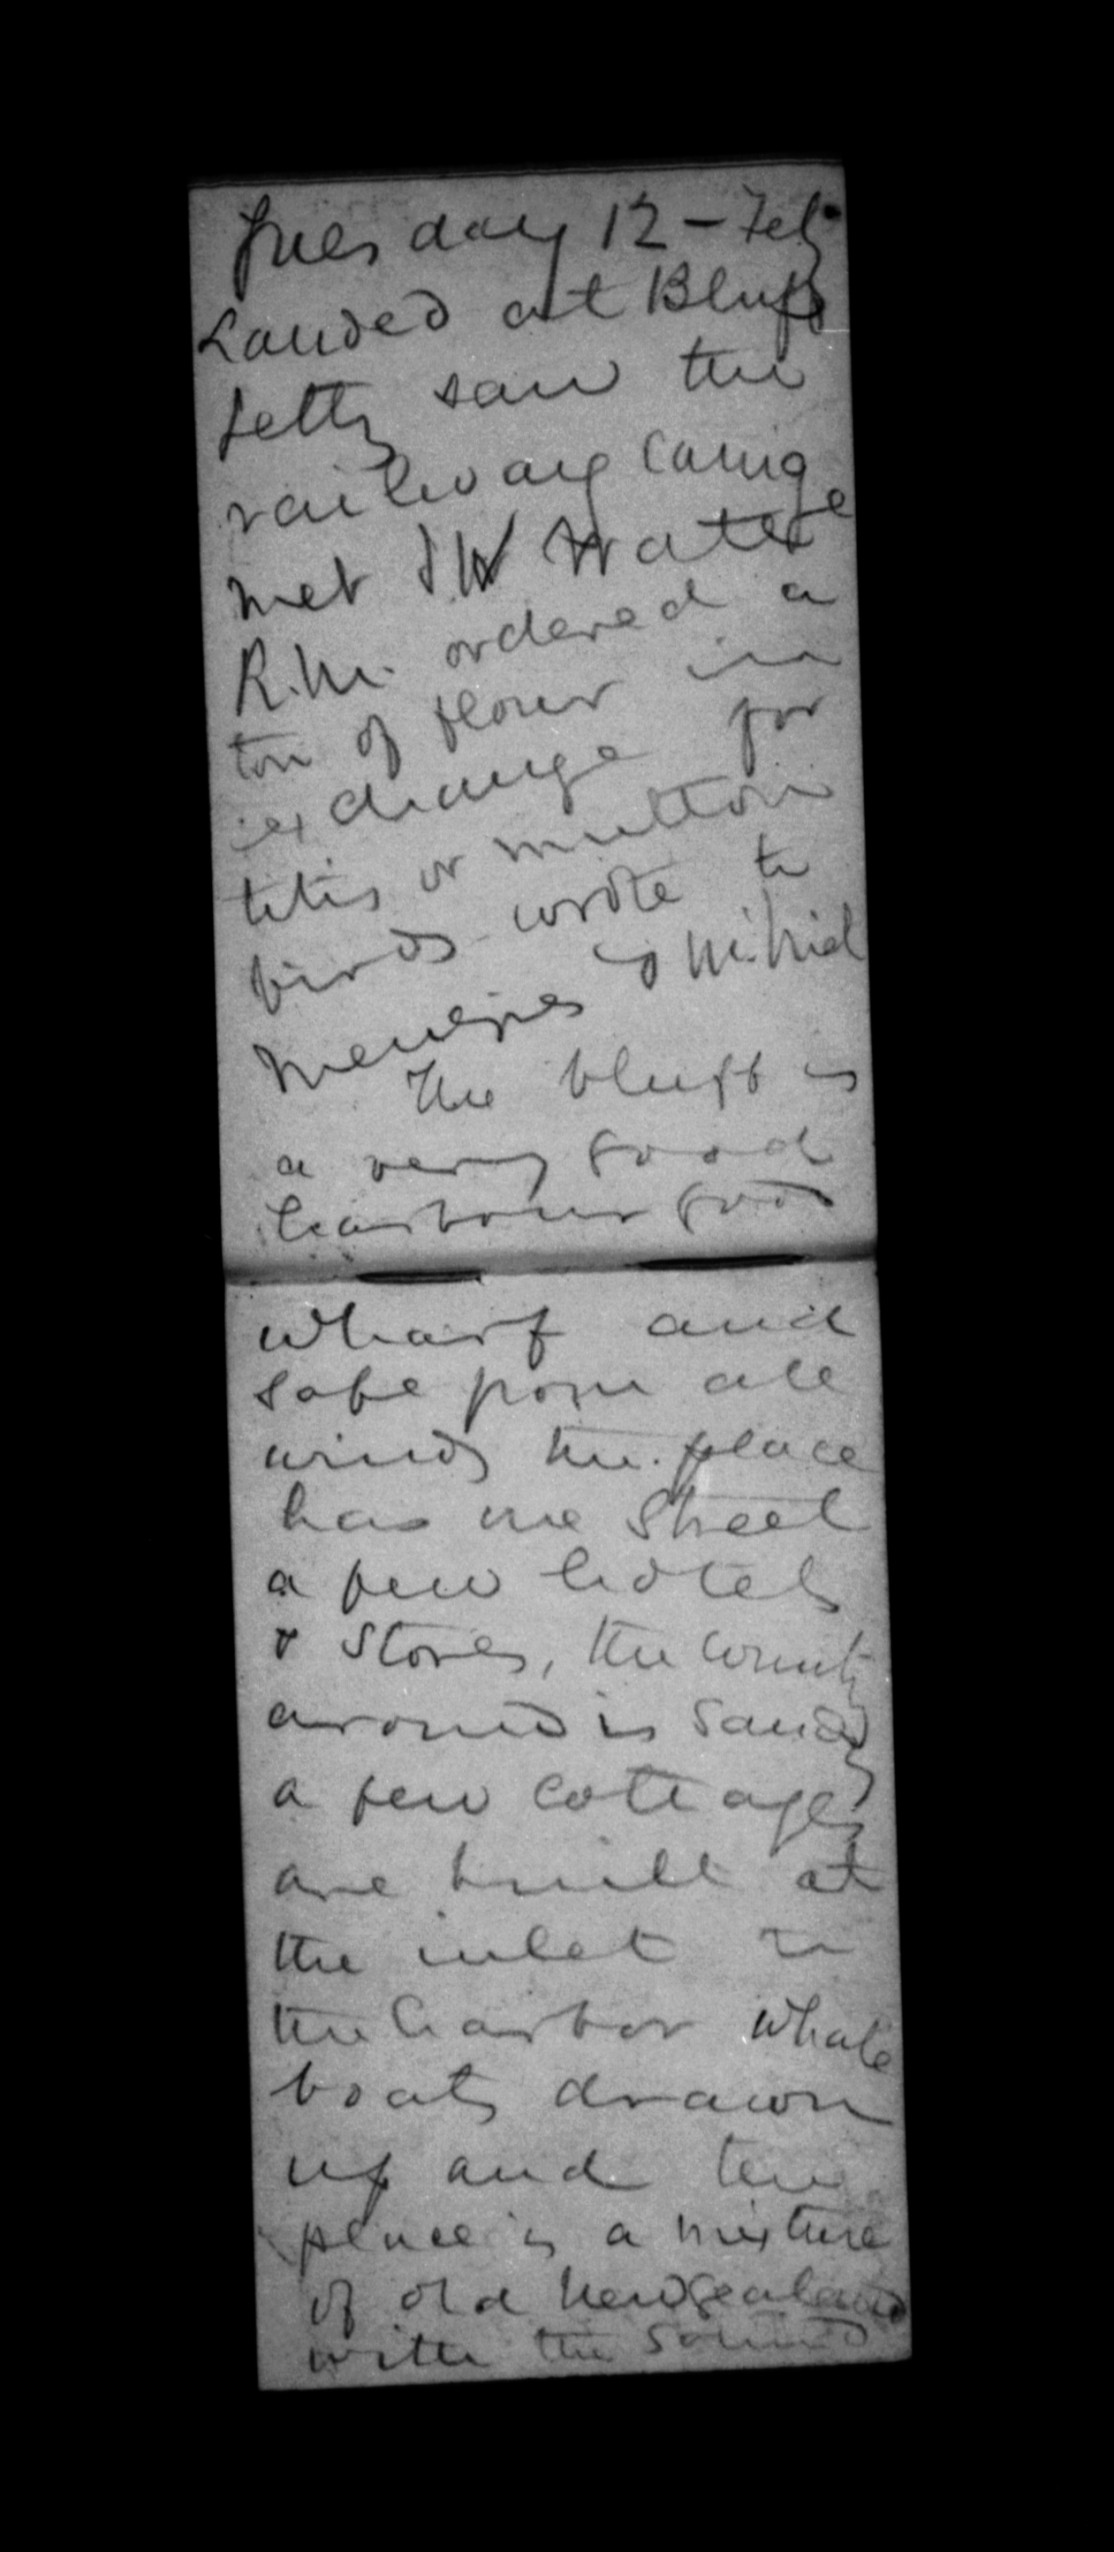 Tuesday 12 - Feby
Landed at Bluff
Jetty saw the
railway carrige
met I W Water
R.M. ordered a
ton of flour in
exchange for
titis or mutton
birds - wrote to
Menzies &
The bluff is
a very good
harbour good
wharf and
safe from all
winds the place
has one Street
a few hotels
& Stores, the country
around is sandy
a few cottages
are built at
the inlet to
the harbor whale
boats drawn
up and the
place is a mixture
of old New Zealand
with the sound